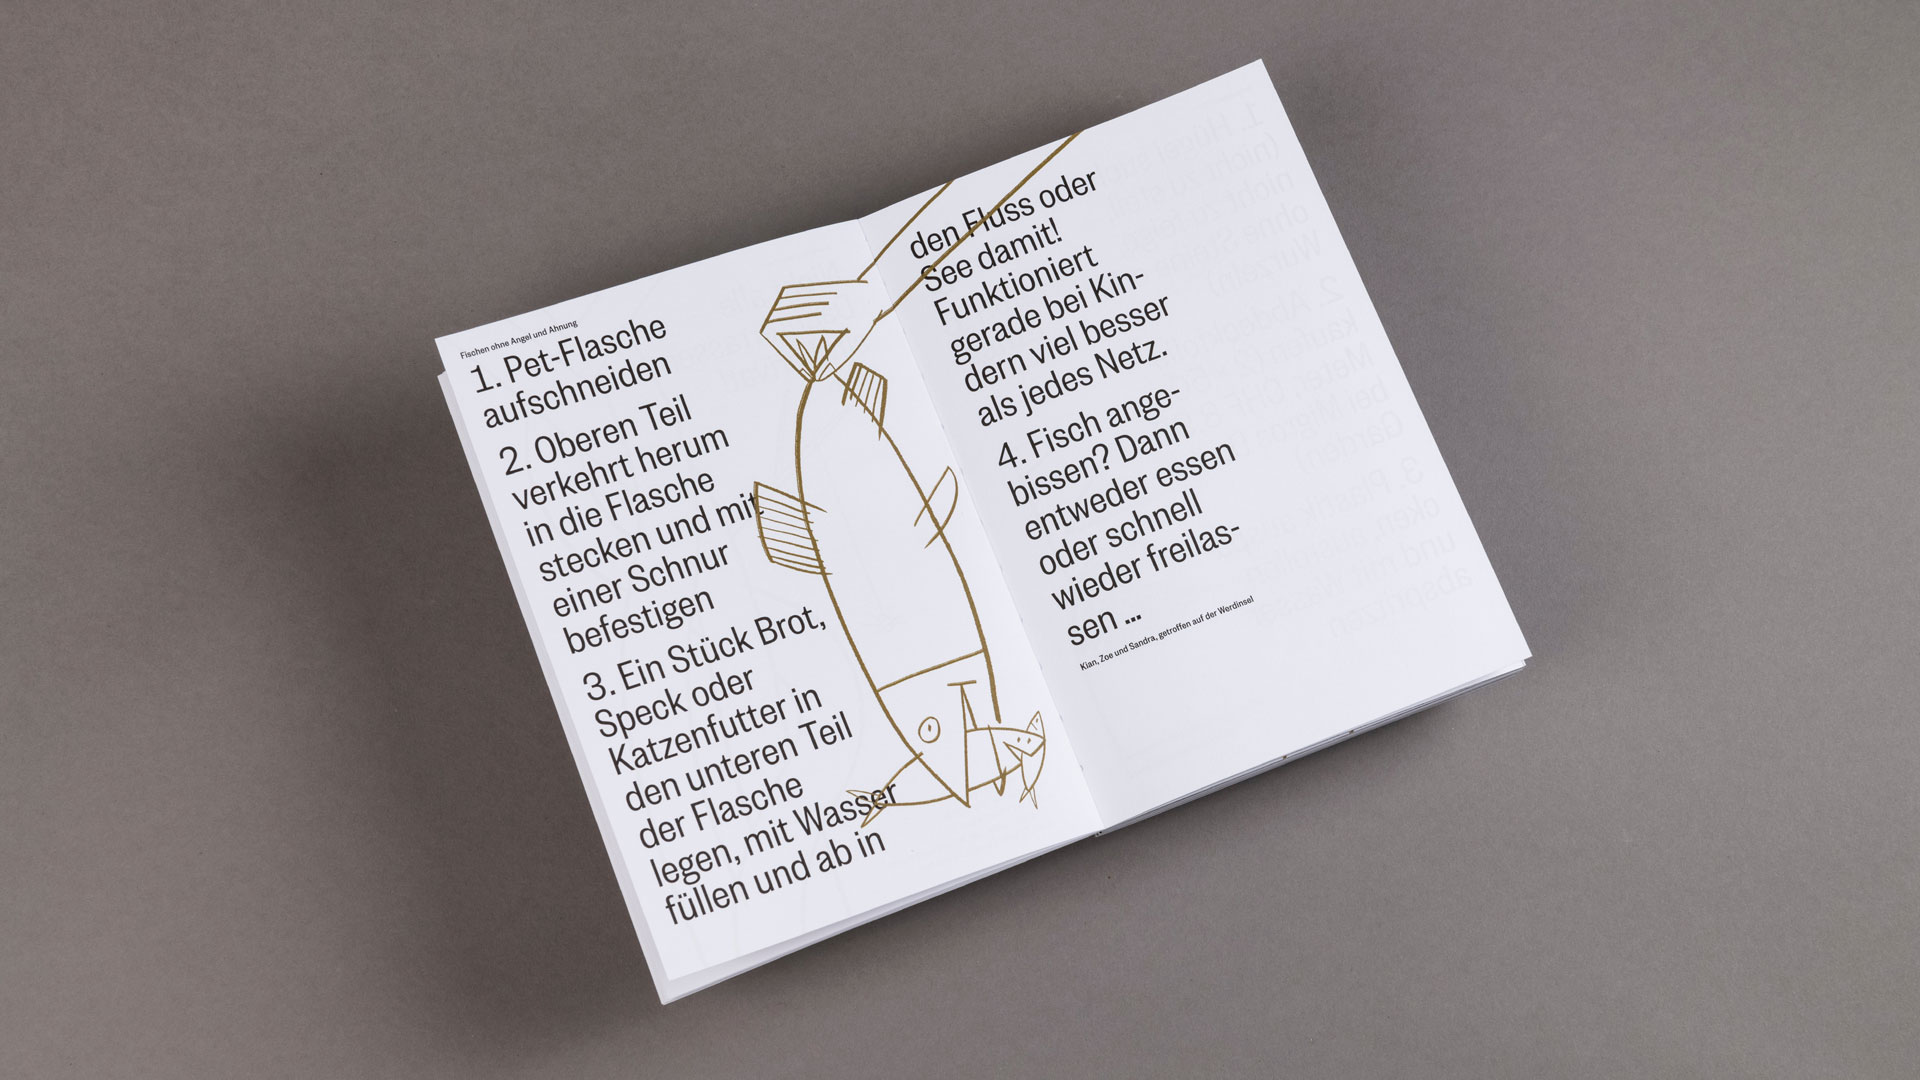 Fischen ohne Angel und Ahnung
1. Pet-Flasche
aufschneiden
2. Oberen Teil
verkehrt herum
in die Flasche
stecken und mit
einer Schnur
befestigen
3. Ein Stück Brot,
Speck oder
Katzenfutter in
den unteren Teil
der Flasche
legen, mit Wasser
füllen und ab in
den Fluss oder
See damit!
Funktioniert
gerade bei Kin-
dern viel besser
als jedes Netz.
4. Fisch ange-
bissen? Dann
entweder essen
oder schnell
wieder freilas-
sen ...
Kian, Zoe und Sandra, getroffen auf der Werdinsel